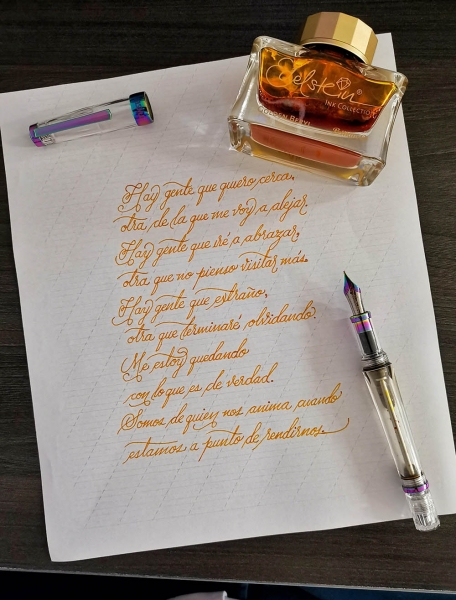 Edelstein®
INK COLLECTION
Hay gente que quiero cerca,
otra de la que me voy a alejar.
Hay gente que iré a abrazar,
otra que no pienso visitar más.
Hay gente que extraño,
otra que terminaré olvidando.
Me estoy quedando
con lo que es de verdad.
Somos de quien nos anima cuando
estamos a punto de rendirnos.